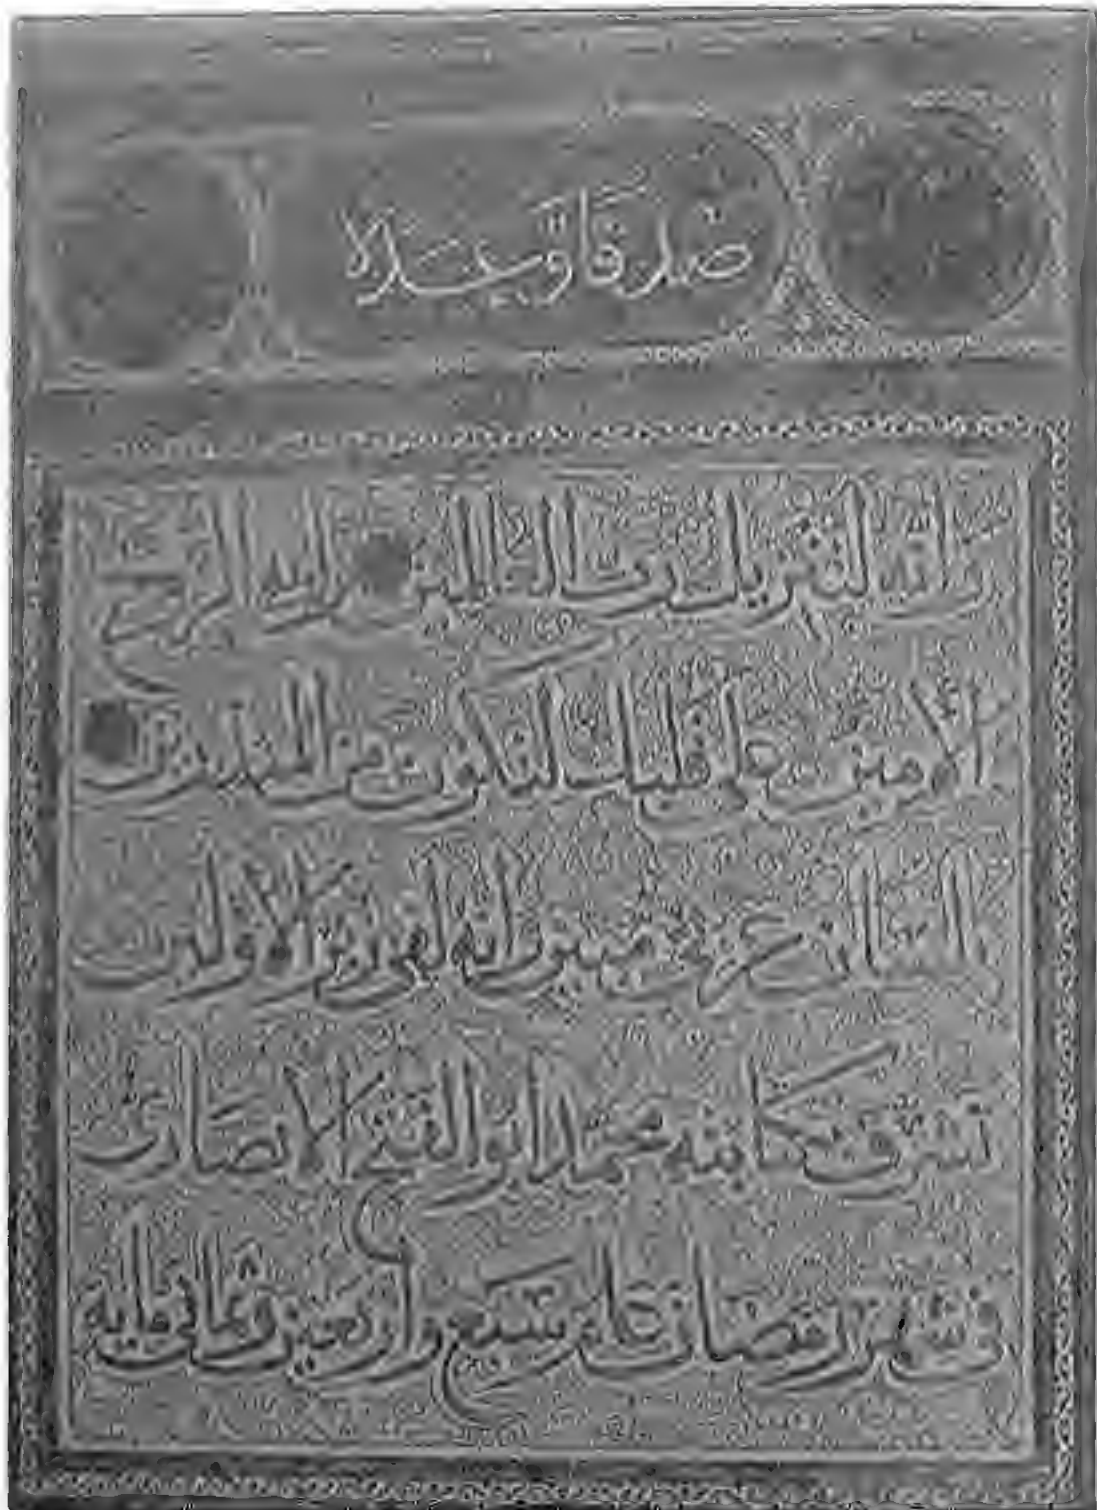 صدقا وعدلا
وانه لتنزيل رب العالمين نزل به الروح
الامين على قلبك لتكون من المنذرين
بلسان عربي مبين وانه لفي زبر الاولين
تشرف بكتابته محمد ابو الفتح الانصاري
في شهر رمضان عام واربعين وثماني مايه